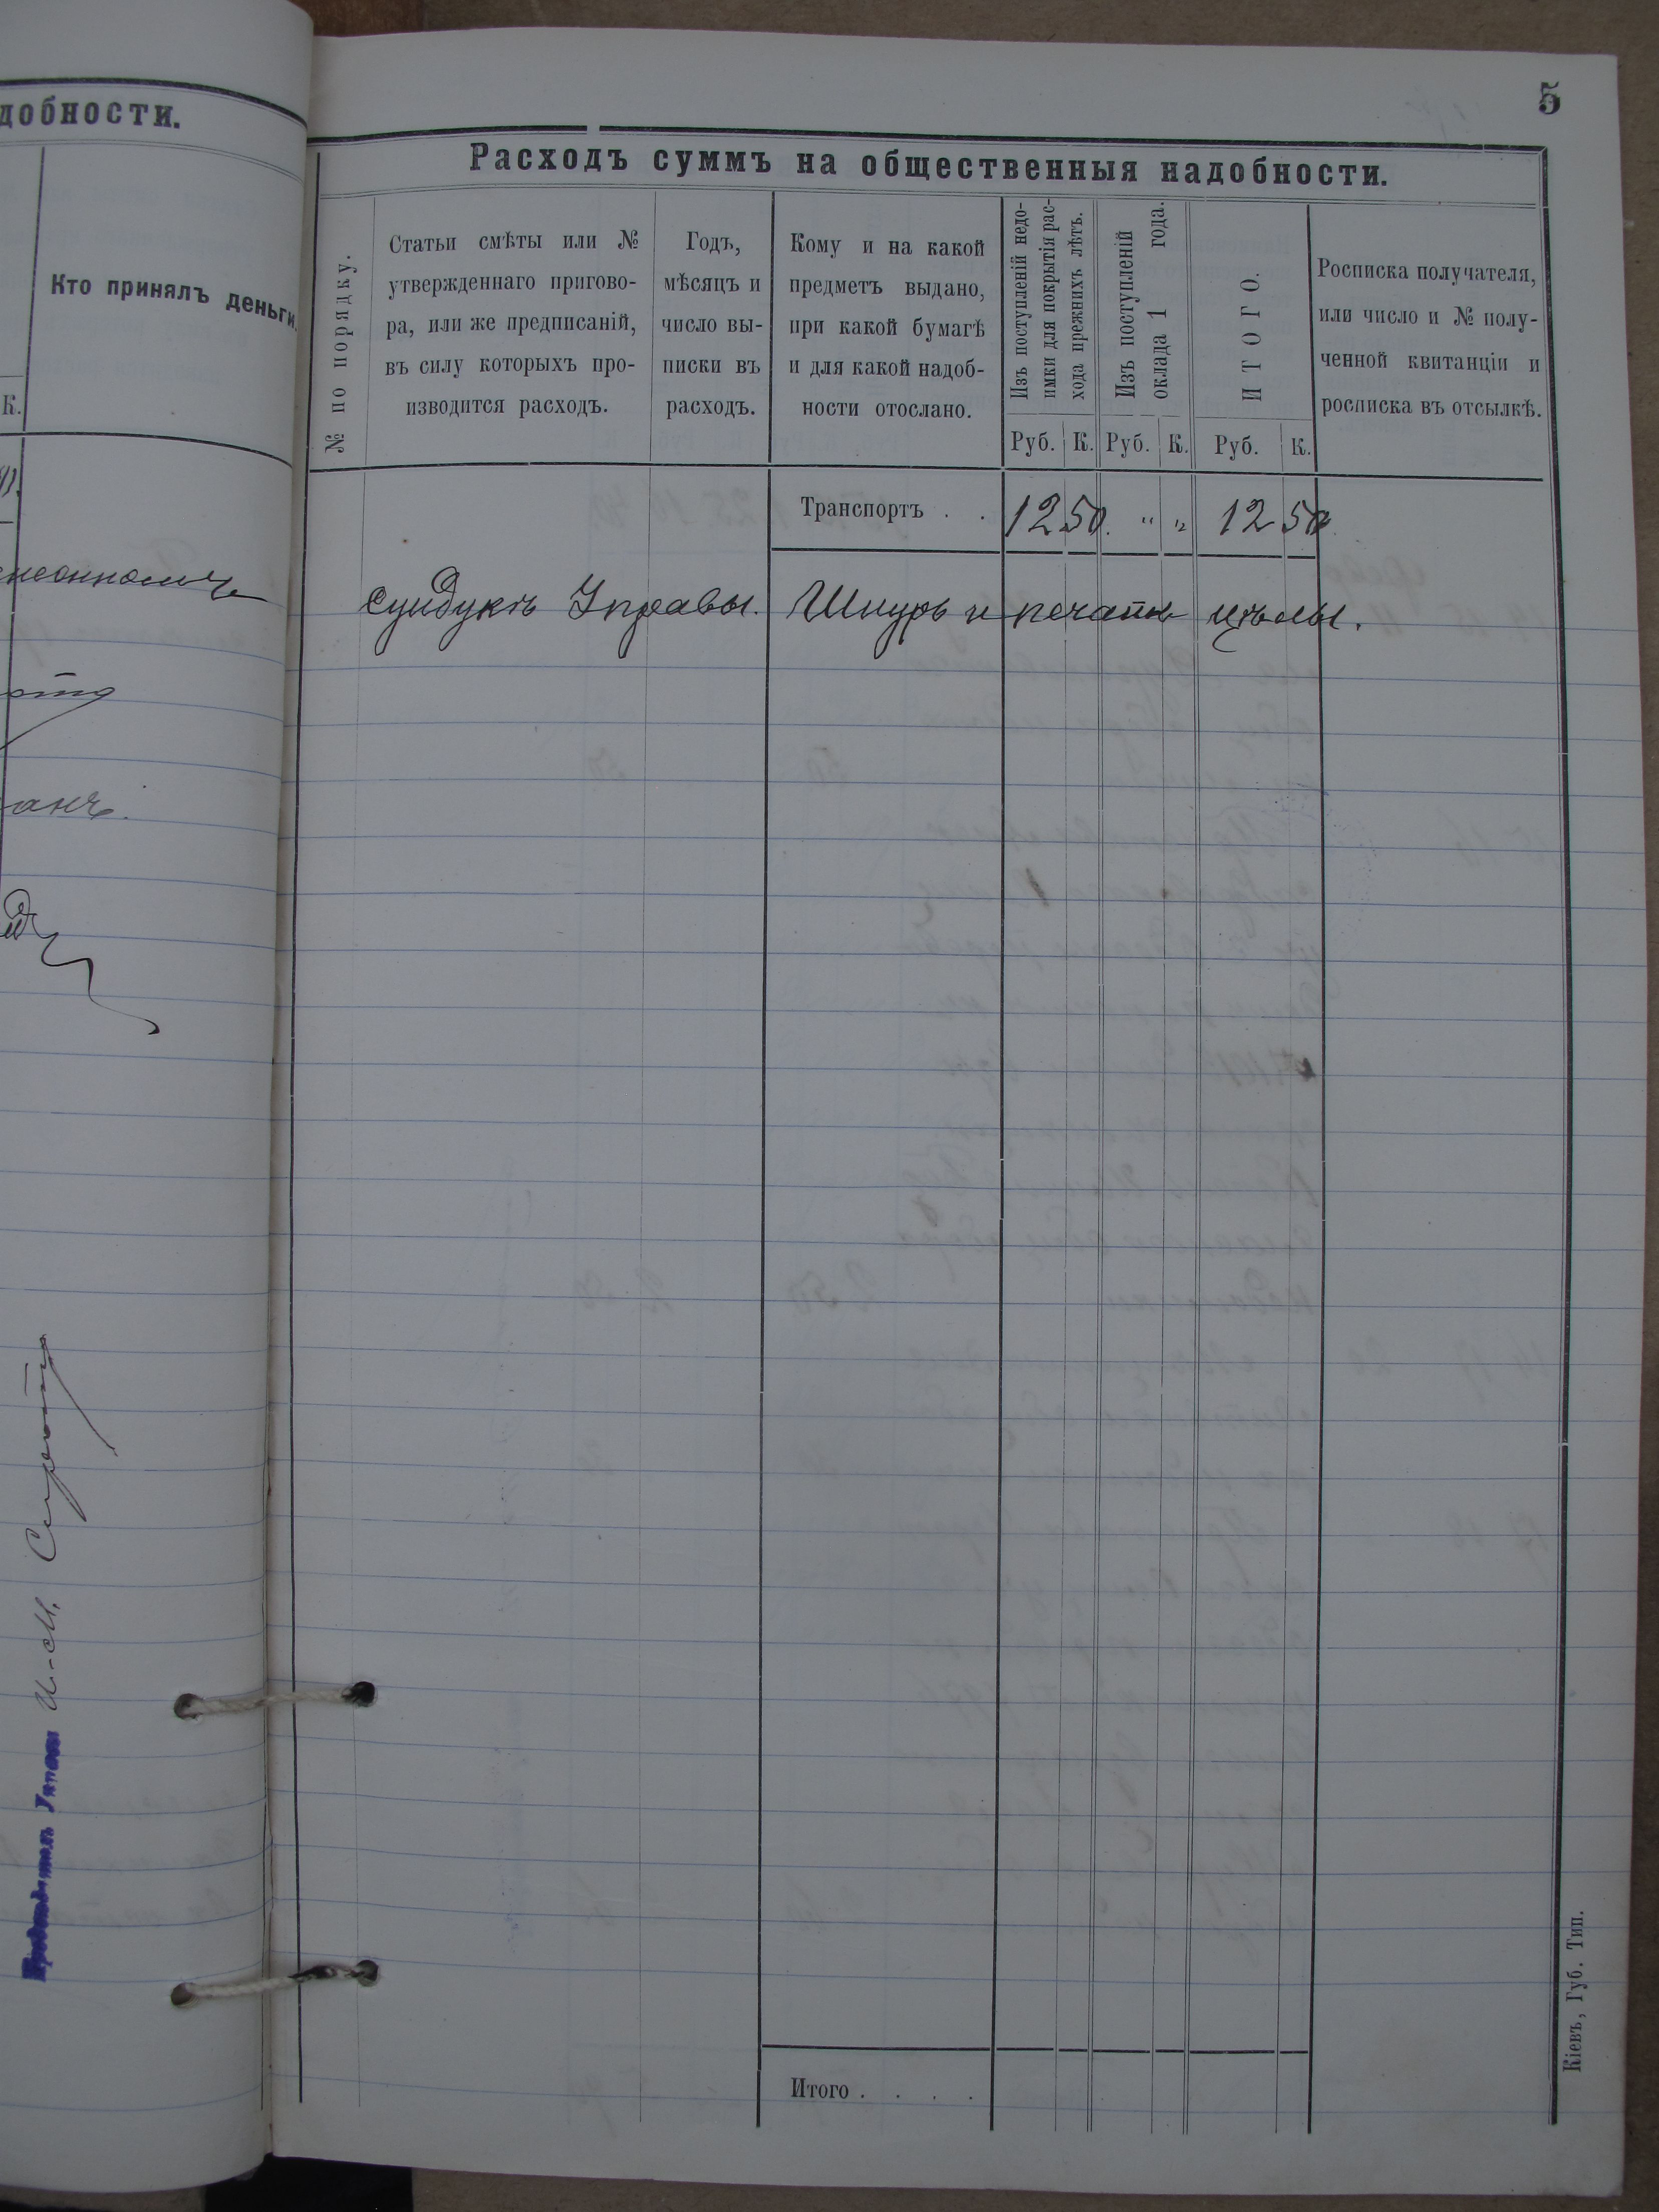 добности.
Кто принялъ деньги.
К.
анъ.
Предсѣдатель Управы И-М. Сиротa
5
Расходъ суммъ на общественныя надобности.
№ по порядку.
Статьи смѣты или №
утвержденнаго пригово-
ра, или же предписаній,
въ силу которыхъ про-
изводится расходъ.
Годъ,
мѣсяцъ и
число вы-
писки въ
расходъ.
Кому и на какой
предметъ выдано,
при какой бумагѣ
и для какой надоб-
ности отослано.
Изъ поступленій недо-
имки для покрытія рас-
хода прежнихъ лѣтъ.
Изъ поступленій
оклада 1 года.
ИТОГО.
Росписка получателя,
или число и № полу-
ченной квитанціи и
росписка въ отсылкѣ.
Руб. К. Руб. К. Руб. К.
Транспортъ . . 12 50 " " 12 50
сундукъ Управы. Шнуръ и печать цѣлы.
Итого . . . .
Кіевъ, Губ. Тип.